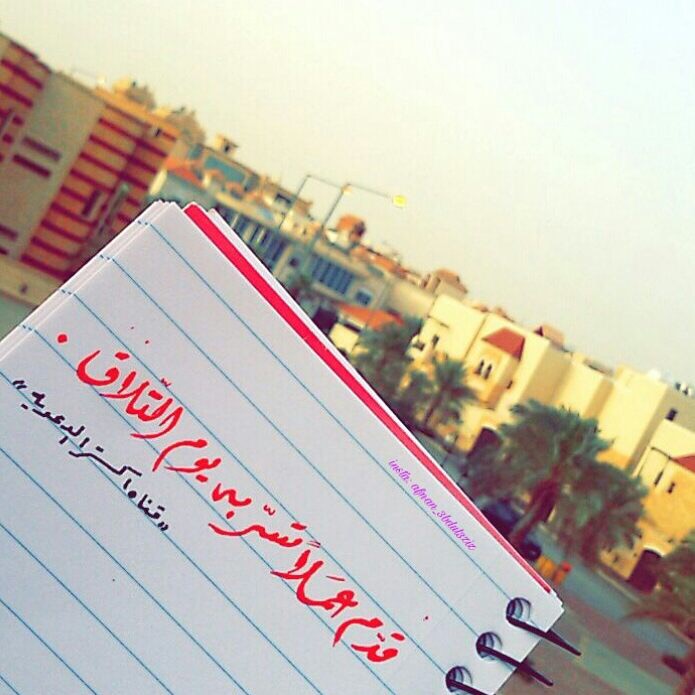 قدّم عملاً تسرّ به يوم التّلاق .
«قناة اكسترا الدعوية»
insta: afnan_3bdul3ziz